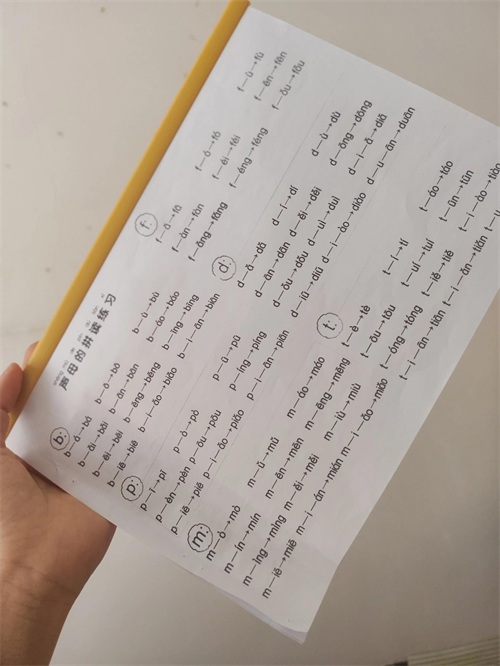 声母的拼读练习
b:
b—á→bá b—ō→bō b—ù→bù
b—ǎi→bǎi b—ān→bān b—áo→báo
b—ēi→bēi b—ēng→bēng b—īng→bīng
b—iě→biě b—i—ǎo→biǎo b—i—ān→biān
p:
p—í→pí p—ò→pò p—ū→pū
p—én→pén p—ōu→pōu p—íng→píng
p—iě→piě p—i—āo→piāo p—i—ān→piān
m:
m—ò→mò m—ǔ→mǔ m—áo→máo
m—ín→mín m—én→mén m—ēng→mēng
m—íng→míng m—ěi→měi m—iù→miù
m—iè→miè m—i—án→mián m—i—ǎo→miǎo
f:
f—ā→fā f—ó→fó f—ù→fù
f—àn→fàn f—ēi→fēi f—ēn→fēn
f—āng→fāng f—éng→féng f—ǒu→fǒu
d:
d—ǎ→dǎ d—í→dí d—ù→dù
d—ān→dān d—ěi→děi d—ōng→dōng
d—ōu→dōu d—uì→duì d—i—ǎ→diǎ
d—iū→diū d—i—ào→diào d—u—ān→duān
t:
t—è→tè t—ī→tī t—áo→táo
t—ōu→tōu t—uī→tuī t—ūn→tūn
t—óng→tóng t—iě→tiě
t—i—ān→tiān t—i—ān→tiān